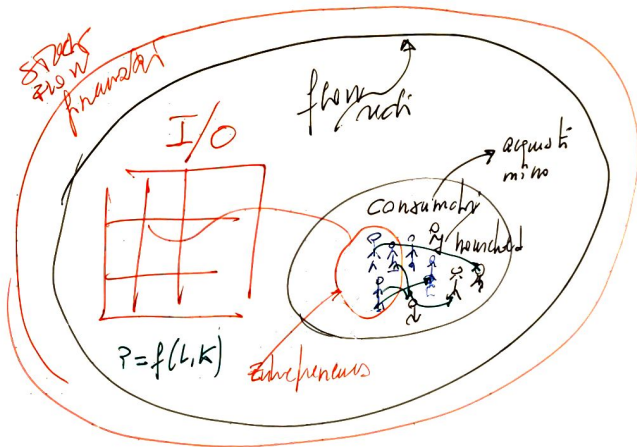 Stock
Flow
finanziari
I/O
flow
reali
acquisti
micro
consumatori
household
P=f(L,K)
Entrepreneurs